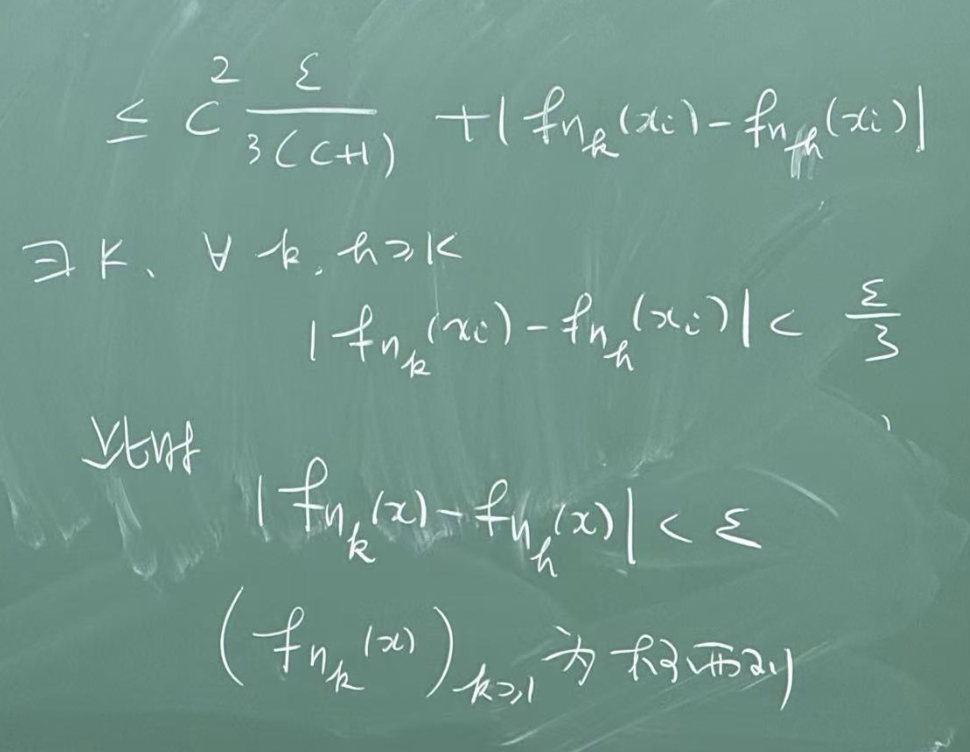 ≤ C 2 ε/3(C+1) + | f_{n_k}(x_i) - f_{n_h}(x_i) |
∃ K, ∀ k, h ≥ K
| f_{n_k}(x_i) - f_{n_h}(x_i) | < ε/3
此时
| f_{n_k}(x) - f_{n_h}(x) | < ε
( f_{n_k}(x) )_{k≥1} 为柯西列